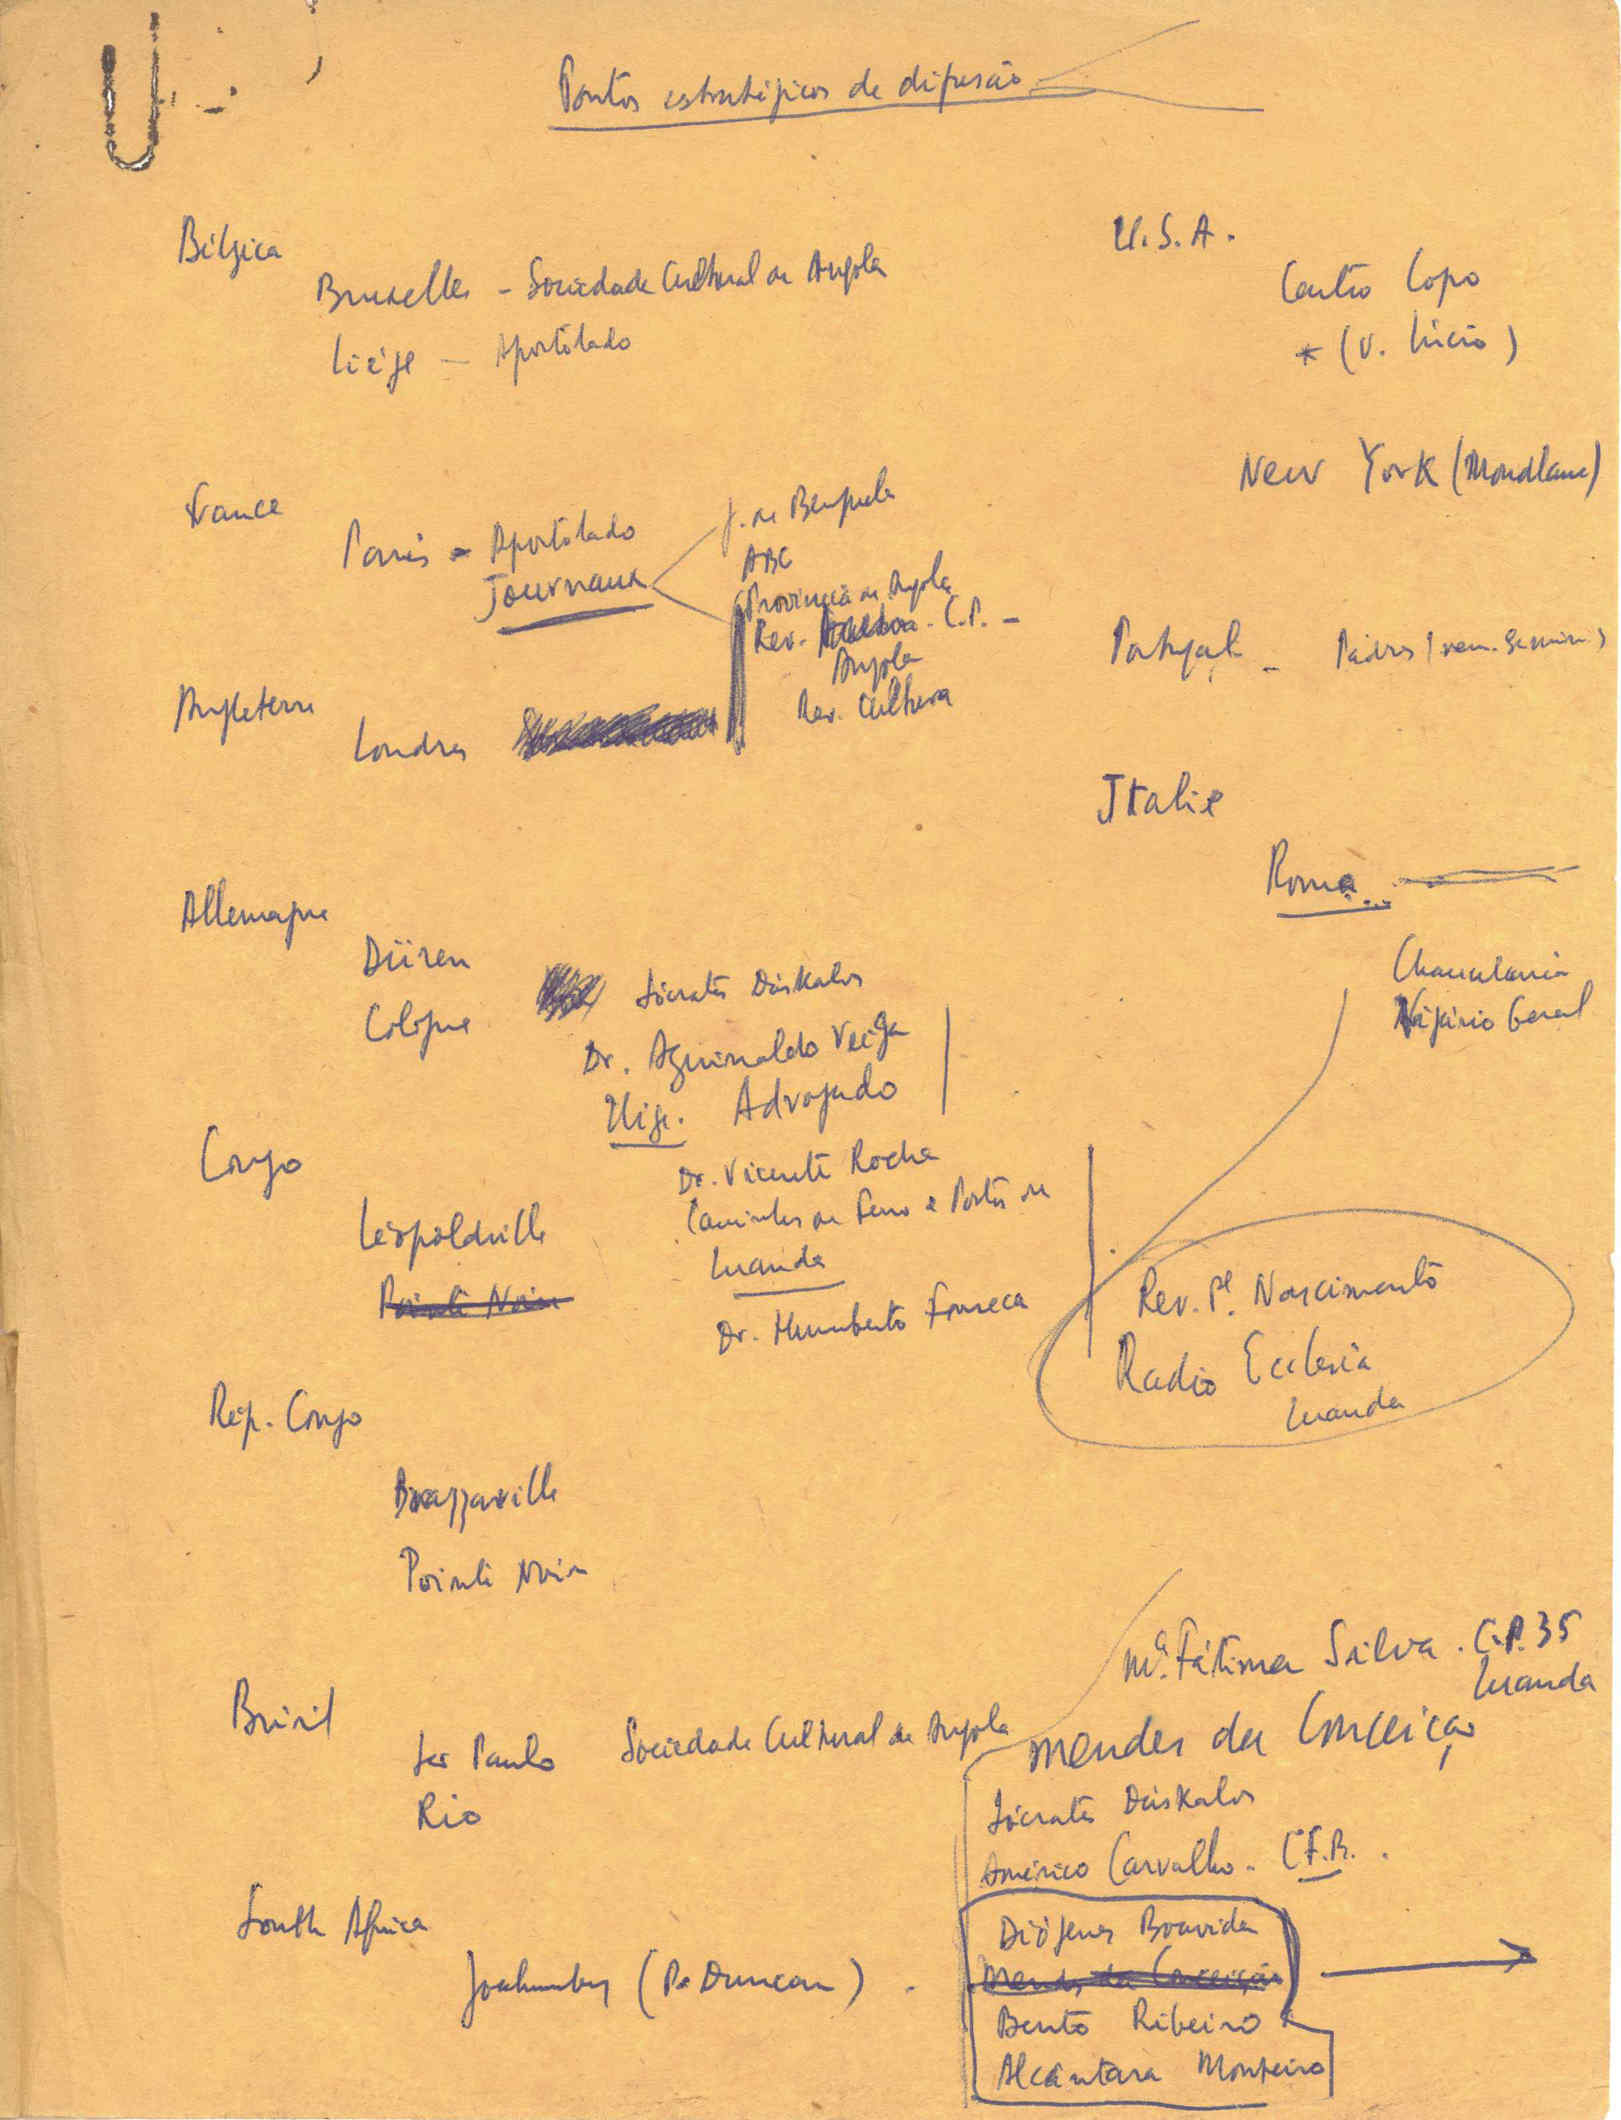 Pontos estratégicos de difusão
Bélgica
Bruxelles - Sociedade Cultural de Angola
Liège - Apostolado
France
Paris - Apostolado
Journaux
J. de Benguela
ABC
Província de Angola
Rev. C.P. -
Angola
Rev. Cultura
Angleterre
Londres
Allemagne
Düren
Cologne
Sócrates Dáskalos
Dr. Aguinaldo Veiga
Uige. Advogado
Congo
Léopoldville
Pointe Noire
Dr. Vicente Rocha
Caminhos de Ferro e Portos de
Luanda
Dr. Humberto Fonseca
Rép. Congo
Brazzaville
Pointe Noire
Brésil
São Paulo Sociedade Cultural de Angola
Rio
South Africa
(P. Duncan)
U.S.A.
Centro Copo
* (V. Lúcio)
New York (Mondlane)
Portugal - Padres
Italie
Roma
Chancelaria
Vigário Geral
Rev. Pe. Nascimento
Radio Ecclesia
Luanda
Mª. Fátima Silva. C.P. 35
Luanda
Mendes da Conceição
Sócrates Dáskalos
Américo Carvalho. C.F.B.
Diógenes Boavida
Mendes da Conceição
Bento Ribeiro
Alcântara Monteiro